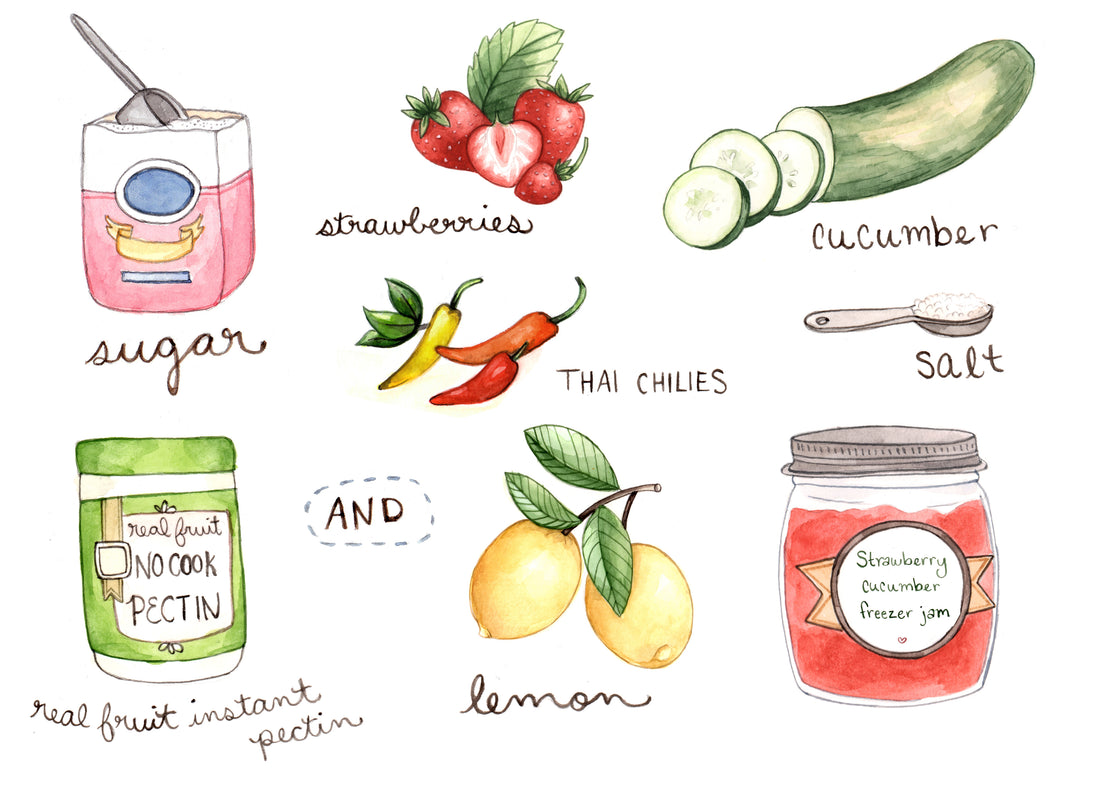 strawberries
cucumber
sugar
THAI CHILIES
salt
real fruit
NO COOK
PECTIN
AND
Strawberry
cucumber
freezer jam
lemon
real fruit instant
pectin